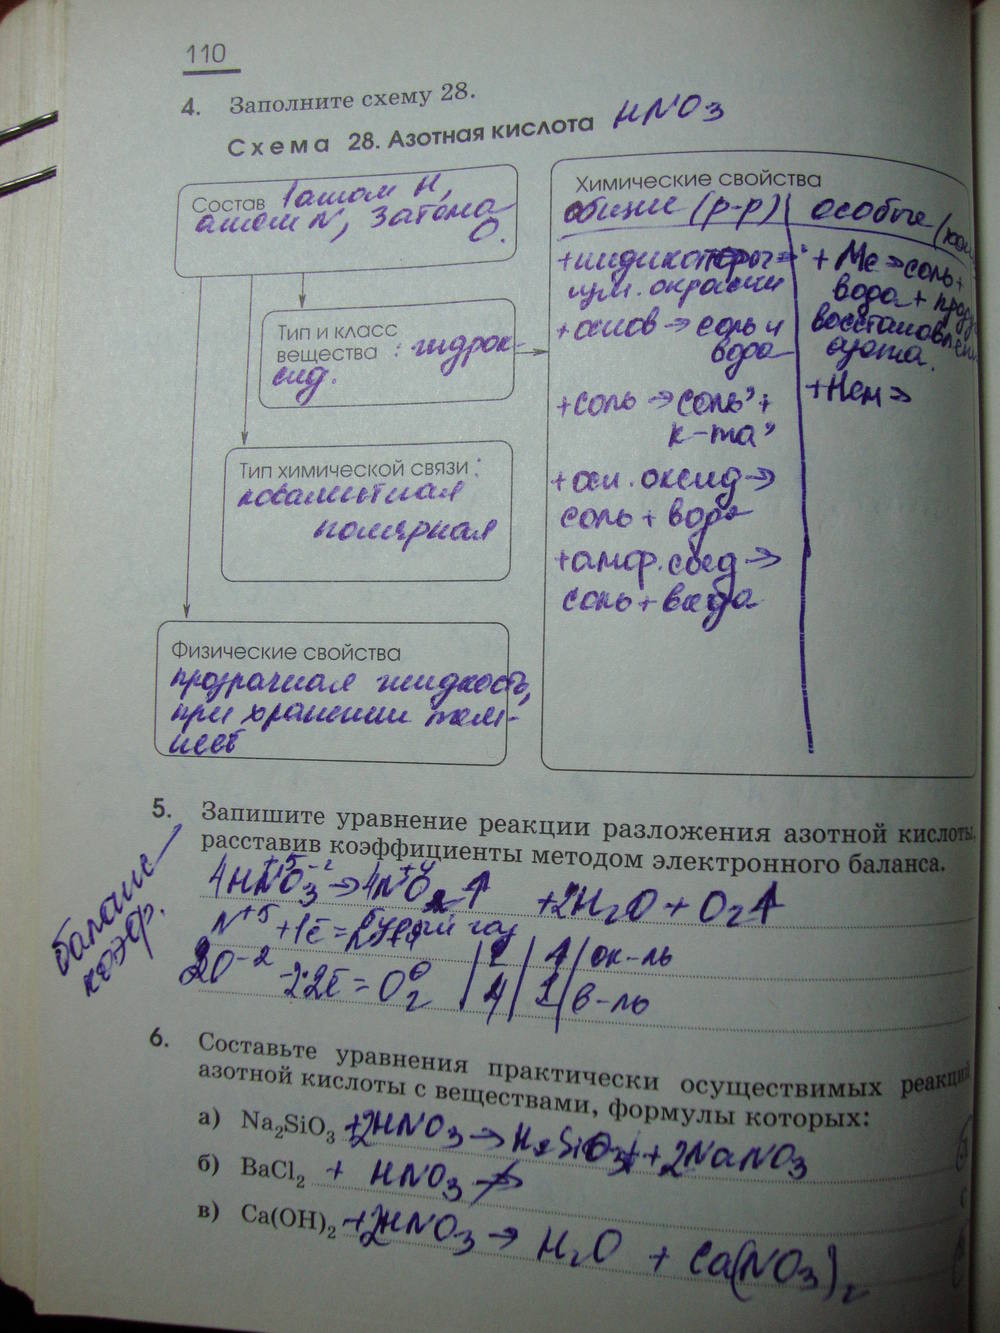 110
4. Заполните схему 28.
Схема 28. Азотная кислота HNO3
Состав 1 атом H,
атом N, 3 атома
O.
Тип и класс
вещества : гидрок-
сид.
Тип химической связи :
ковалентная
полярная
Физические свойства
прозрачная жидкость,
при хранении тем-
неет
Химические свойства
общие (р-р) особые
+индикаторы ⇒
изм. окраски
+основ → соль и
вода
+соль → соль' +
к-та'
+осн. оксид →
соль + вода
+амф. соед →
соль + вода
+ Ме ⇒ соль +
вода + прод
восстановлен
азота.
+НеМ ⇒
5. Запишите уравнение реакции разложения азотной кислоты,
расставив коэффициенты методом электронного баланса.
4HN⁺⁵O₃⁻² → 4N⁺⁴O₂↑ + 2H₂O + O₂↑
бурый газ
N⁺⁵ + 1ē = | | 4 | ок-ль
2O⁻² - 2·2ē = O₂⁰ | 4 | 1 | в-ль
баланс
коэф.
6. Составьте уравнения практически осуществимых реакций
азотной кислоты с веществами, формулы которых:
а) Na₂SiO₃ + 2HNO₃ → H₂SiO₃↓ + 2NaNO₃
б) BaCl₂ + HNO₃ ↛
в) Ca(OH)₂ + 2HNO₃ → H₂O + Ca(NO₃)₂